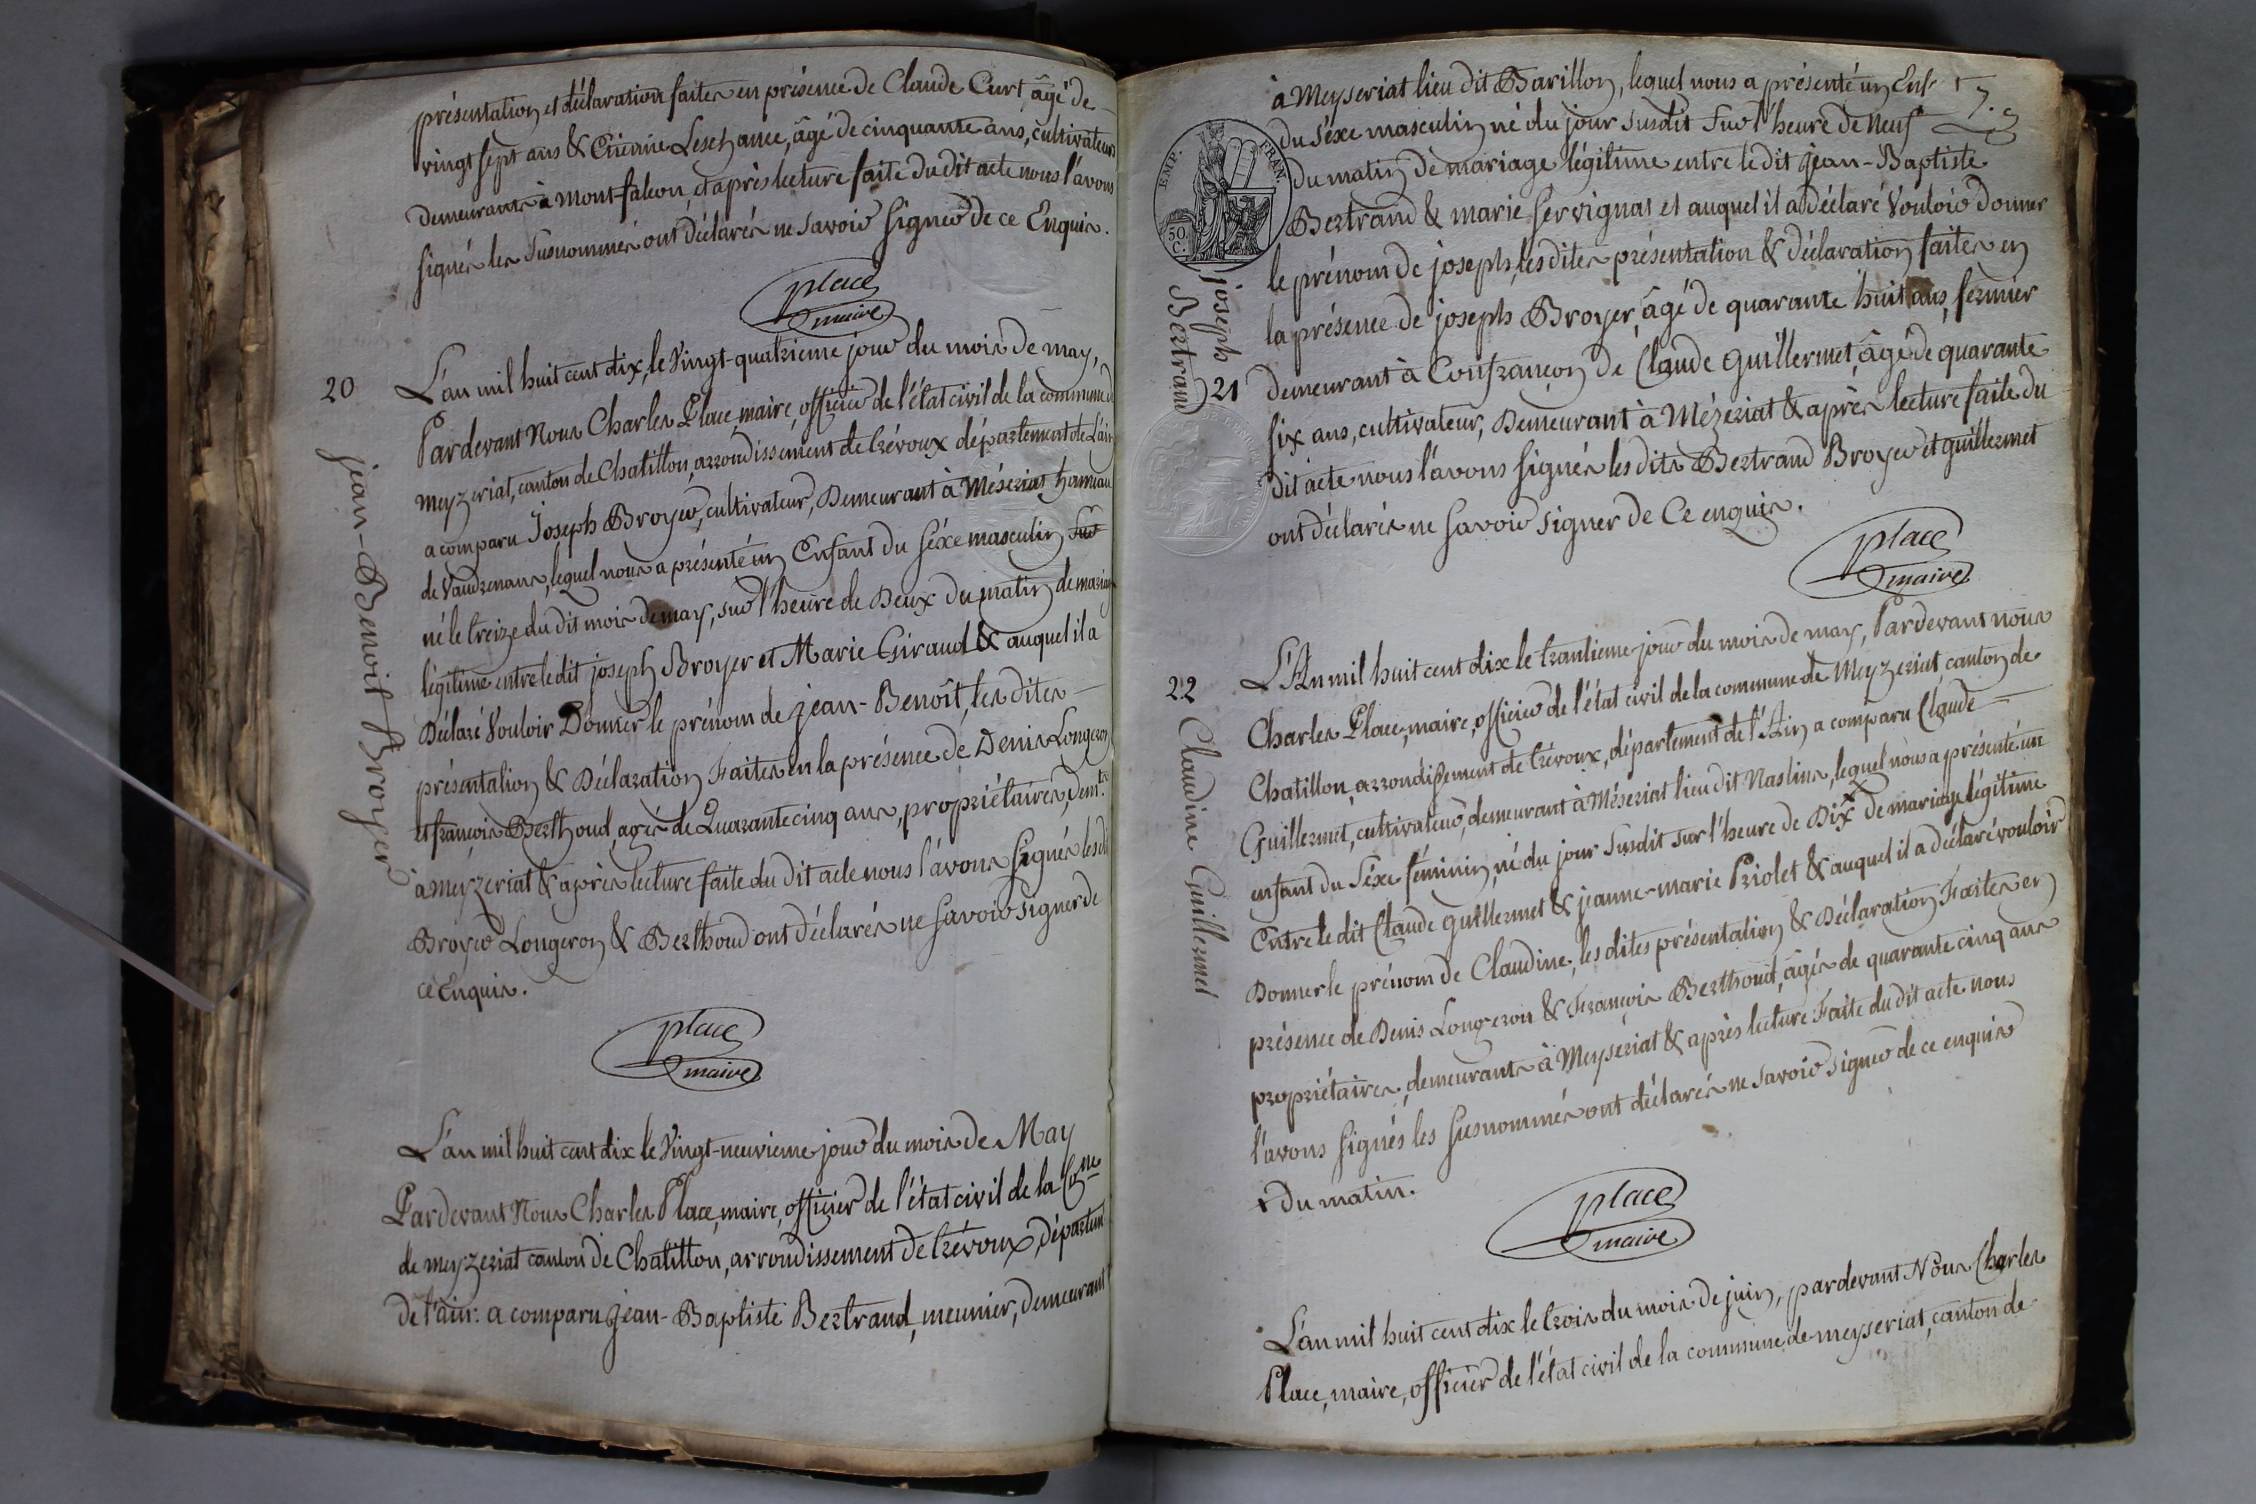 présentation et déclaration faites en présence de Claude Curt, âgé de
vingt sept ans & Etienne Leschance, âgé de cinquante ans, cultivateurs
demeurants à Montfalcon, et après lecture faite du dit acte nous l'avons
signés les susnommés ont déclarés ne savoir signer de ce Enquis.
place
maire
20
jean-Benoit Broyer
L'an mil huit cent dix, le Vingt-quatrieme jour du mois de may,
Pardevant Nous Charles Place, maire, officier de l'état civil de la commune de
meyzeriat, canton de Chatillon, arrondissement de trévoux département de L'ain
a comparu Joseph Broyer, cultivateur, Demeurant à Méseriat hameau
de Vaudrenans, lequel nous a présenté un Enfant du séxe masculin sur
né le treize du dit mois de may, sur l'heure de Deux du matin de mariage
légitime entre le dit joseph Broyer et Marie Giraud & auquel il a
Déclaré Vouloir Donner le prénom de jean-Benoît, les dites
présentation & Déclaration Faites en la présence de Denis Longeron
et françois Berthoud, agés de Quarante cinq ans, propriétaires, demts
à meyzeriat & après lecture faite du dit acte nous l'avons signés les dit
Broyer Longeron & Berthoud ont déclarés ne savoir signer de
ce Enquis.
place
maire
L'an mil huit cent dix le Vingt-neuvieme jour du mois de May
Pardevant Nous Charles Place, maire, officier de l'état civil de la Cne
de meyzeriat canton de Chatillon, arrondissement de trévoux, département
de l'ain: a comparu jean-Baptiste Bertrand, meunier, demeurant
7.
à Meyseriat lieu dit Barillon, lequel nous a présenté un Enf.
du séxe masculin né du jour susdit sur l'heure de neuf
du matin de mariage légitime entre le dit jean-Baptiste
Bertrand & marie servignat et auquel il a déclaré Vouloir donner
le prénom de joseph, les dites présentation & déclaration faites en
la présence de joseph Broyer, âgé de quarante huit ans, fermier
demeurant à Confrançon de Claude guillermet, âgé de quarante
six ans, cultivateur, Demeurant à Mézeriat & après lecture faite du
dit acte nous l'avons signés les dits Bertrand Broyer et guillermet
ont déclarés ne savoir signer de Ce enquis.
EMP. FRAN.
50
C.
21
joseph
Bertrand
place
maire
22
Claudine Guillermet
L'An mil huit cent dix le trantieme jour du mois de may, Pardevant nous
Charles Place, maire, officier de l'état civil de la commune de Meyzeriat, canton de
Chatillon, arrondissement de trévoux, département de l'Ain a comparu Claude
Guillermet, cultivateur, demeurant à Méseriat lieu dit Naslins, lequel nous a présenté un
enfant du séxe féminin, né du jour susdit sur l'heure de Dix x de mariage légitime
Entre le dit Claude guillermet & jeanne-marie Priolet & auquel il a déclaré vouloir
Donner le prénom de Claudine, les dites présentation & Déclaration Faites en
présence de Denis Longeron & François Berthoud, âgés de quarante cinq ans
propriétaires, demeurants à Meyseriat & après lecture Faite du dit acte nous
l'avons signés les susnommés ont déclarés ne savoir signer de ce enquis
x du matin.
place
maire
L'an mil huit cent dix le trois du mois de juin, pardevant Nous Charles
Place, maire, officier de l'état civil de la commune de meyseriat, canton de